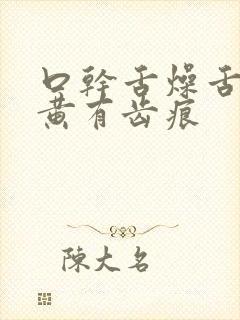 口幹舌燥舌
黄有齿痕
陳大名